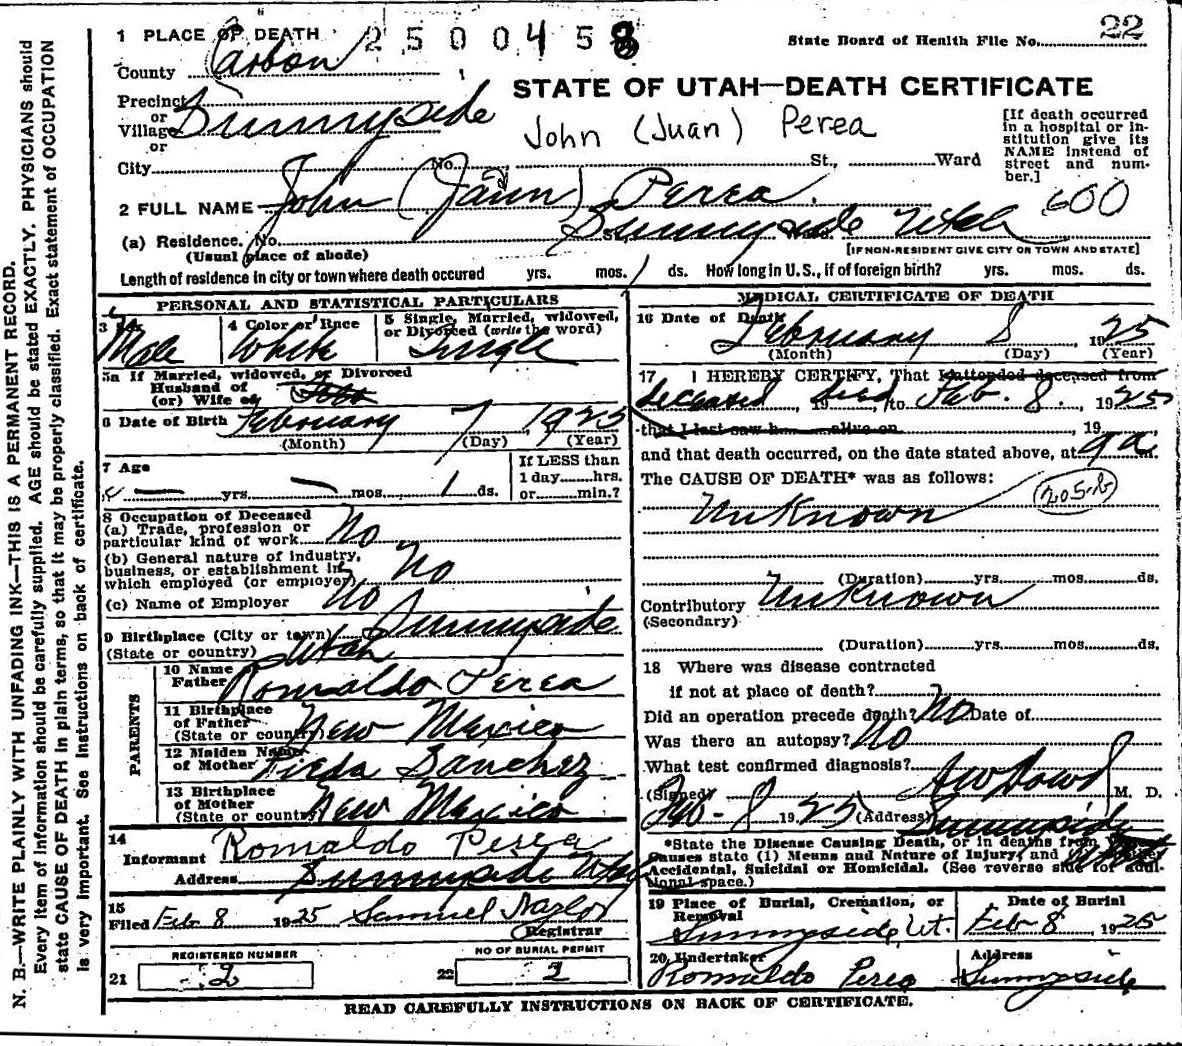 1 PLACE OF DEATH 2500458
State Board of Health File No. 22
County Carbon
STATE OF UTAH—DEATH CERTIFICATE
Precinct
or
Village Sunnyside
or
John (Juan) Perea
[If death occurred in a hospital or institution give its NAME instead of street and number.]
City No. St., Ward
2 FULL NAME John (Jaun) Perea.
600
(a) Residence. No. St., Sunnyside Utah
(Usual place of abode)
[IF NON-RESIDENT GIVE CITY OR TOWN AND STATE]
Length of residence in city or town where death occured yrs. mos. 1 ds. How long in U.S., if of foreign birth? yrs. mos. ds.
PERSONAL AND STATISTICAL PARTICULARS
3 Sex Male
4 Color or Race White
5 Single, Married, widowed, or Divorced (write the word) Single
5a If Married, widowed, or Divorced
Husband of
(or) Wife of
6 Date of Birth February 7, 1925
(Month) (Day) (Year)
7 Age — yrs. — mos. 1 ds.
If LESS than
1 day......hrs.
or.......min.?
8 Occupation of Deceased
(a) Trade, profession or
particular kind of work No
(b) General nature of industry,
business, or establishment in
which employed (or employer) No
(c) Name of Employer No
9 Birthplace (City or town) Sunnyside
(State or country) Utah
PARENTS
10 Name of
Father Romaldo Perea
11 Birthplace
of Father
(State or country) New Mexico
12 Maiden Name
of Mother Sanchez
13 Birthplace of
Mother
(State or country) New Mexico
14
Informant Romaldo Perea
Address Sunnyside Utah
15
Filed Feb 8 1925 Samuel Naylor
Registrar
REGISTERED NUMBER
21 2
NO OF BURIAL PERMIT
22 2
MEDICAL CERTIFICATE OF DEATH
16 Date of Death February 8, 1925
(Month) (Day) (Year)
17 I HEREBY CERTIFY, That I attended deceased from
deceased, 19 died, to Feb. 8., 1925
that I last saw h alive on , 19
and that death occurred, on the date stated above, at 9 a m.
The CAUSE OF DEATH* was as follows:
Unknown 205-b
(Duration) yrs. mos. ds.
Contributory Unknown
(Secondary)
(Duration) yrs. mos. ds.
18 Where was disease contracted
if not at place of death?
Did an operation precede death? No Date of
Was there an autopsy? No
What test confirmed diagnosis?
(Signed) A W Dowd M. D.
Feb - 8 1925 (Address) Sunnyside
*State the Disease Causing Death, or in deaths from
Causes state (1) Means and Nature of Injury; and
Accidental, Suicidal or Homicidal. (See reverse side for addi-
tional space.)
19 Place of Burial, Cremation, or
Removal
Sunnyside, Ut.
Date of Burial
Feb 8 1925
20 Undertaker
Romaldo Perea
Address
Sunnyside
READ CAREFULLY INSTRUCTIONS ON BACK OF CERTIFICATE.
N. B.—WRITE PLAINLY WITH UNFADING INK—THIS IS A PERMANENT RECORD.
Every item of information should be carefully supplied. AGE should be stated EXACTLY. PHYSICIANS should
state CAUSE OF DEATH in plain terms, so that it may be properly classified. Exact statement of OCCUPATION
is very important. See instructions on back of certificate.